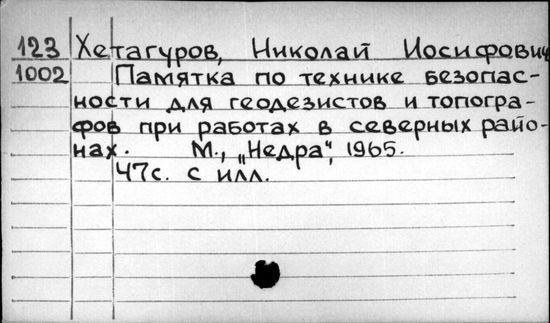 123 Хетагуров, Николай Иосифович
1002 Памятка по технике безопас-
ности для геодезистов и топогра-
фов при работах в северных райо-
нах. М., „Недра", 1965.
47с. с илл.